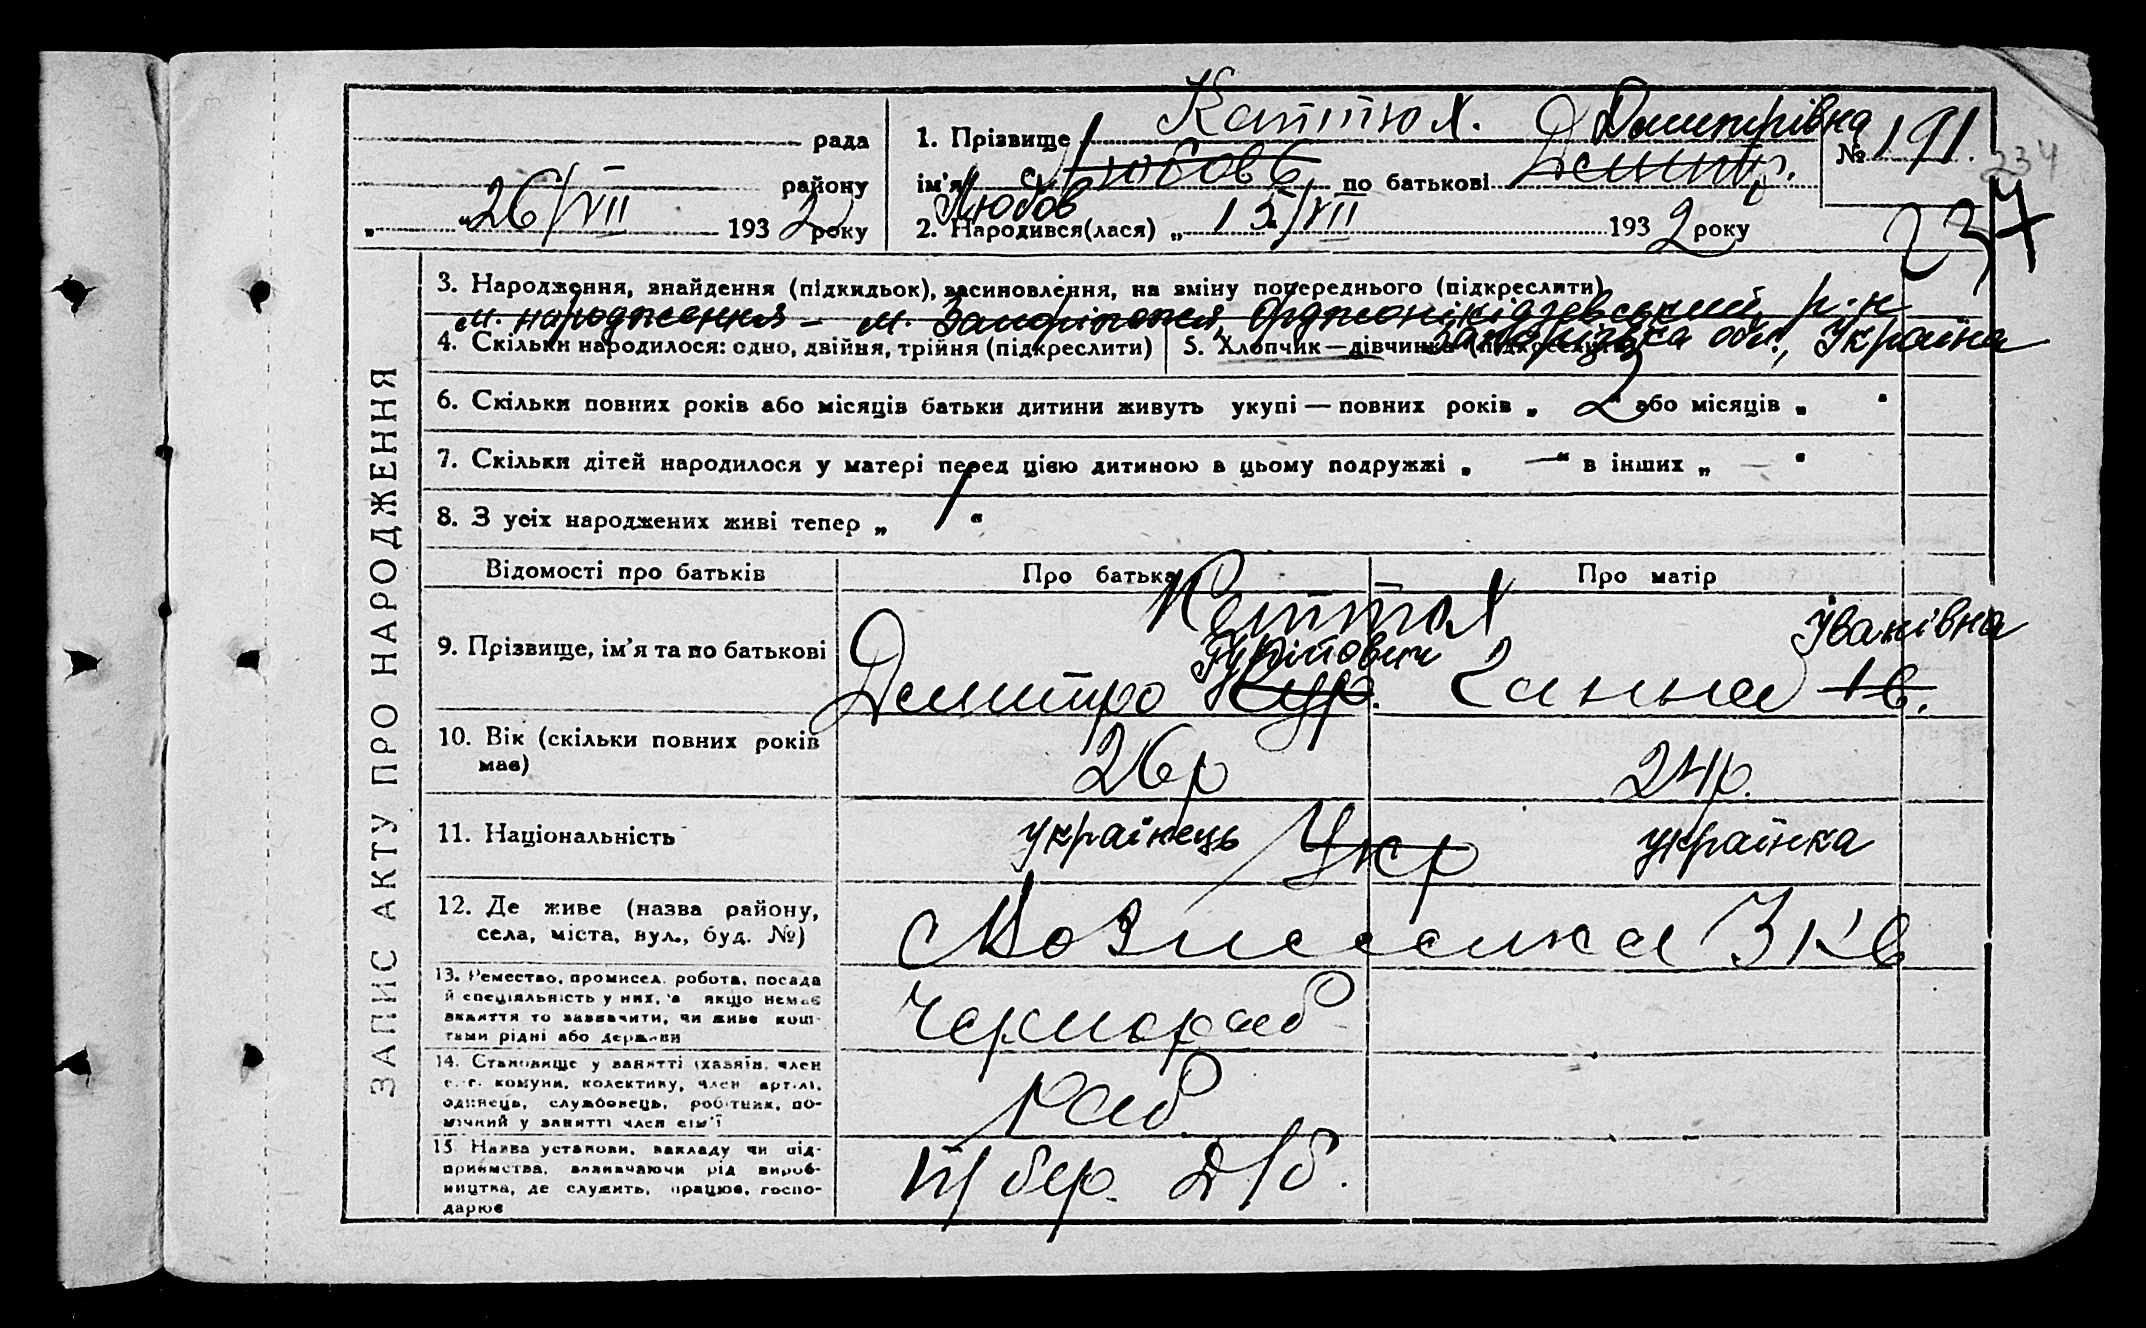 рада
району
„ 26/VII 1932 року
1. Прізвище Каттюх.
ім'я Любовь по батькові Дмитр. Дмитрівна
Любов
2. Народився(лася) „ 15/VII 1932 року
№ 191.
234
237
ЗАПИС АКТУ ПРО НАРОДЖЕННЯ
3. Народження, знайдення (підкидьок), засиновлення, на зміну попереднього (підкреслити)
м. народження – м. Запоріжжя, Орджонікідзевський р-н
Запорізька обл., Україна
4. Скільки народилося: одно, двійня, трійня (підкреслити) 5. Хлопчик — дівчинка (підкреслити)
6. Скільки повних років або місяців батьки дитини живуть укупі — повних років „ 2 “ або місяців „ “
7. Скільки дітей народилося у матері перед цією дитиною в цьому подружжі „ — “ в інших „ — “
8. З усіх народжених живі тепер „ 1 “
Відомості про батьків Про батька Про матір
9. Прізвище, ім'я та по батькові
Каттюх
Дмитро Гурійович Ганна Іванівна
Ів.
10. Вік (скільки повних років має) 26р 24р.
11. Національність українець Укр українка
12. Де живе (назва району, села, міста, вул., буд. №) Вознесенка
13. Ремество, промисел, робота, посада
й спеціяльність у них, а якщо немає
заняття то зазначити, чи живе кош-
тами рідні або держави
Чернораб
14. Становище у занятті (хазяїн, член
с.-г. комуни, колективу, член артілі,
одинець, службовець, робітник, по-
мічний у занятті член сім'ї
раб
15 Назва установи, закладу чи під-
приємства, зазначаючи рід вироб-
ництва, де служить, працює, госпо-
дарює
бер.